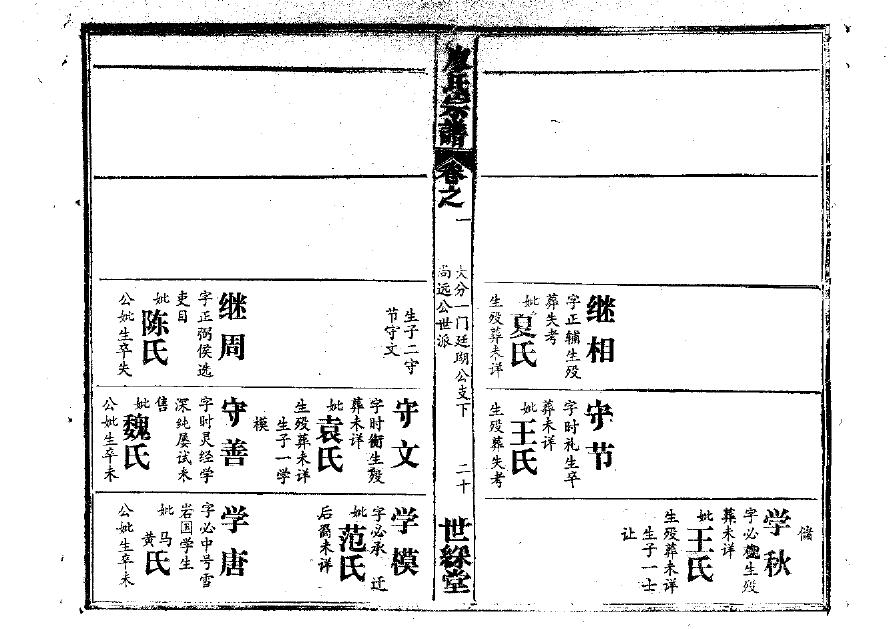 继相
字正辅生殁
葬失考
妣夏氏
生殁葬未详
守节
字时礼生卒
葬未详
妣王氏
生殁葬失考
储
学秋
字必生殁
葬未详
妣王氏
生殁葬未详
生子一士
让
廖氏宗譜
卷之一
大分一门廷瑚公支下
尚远公世派
二十
世綵堂
生子二守
节守文
继周
字正弼侯选
吏目
妣陈氏
公妣生卒失
守文
字时衡生殁
葬未详
妣袁氏
生殁葬未详
生子一学
模
守善
字时灵经学
深纯屡试未
售
妣魏氏
公妣生卒未
学模
字必承 迁
妣范氏
后裔未详
学唐
字必中号雪
岩国学生
妣马黄氏
公妣生卒未